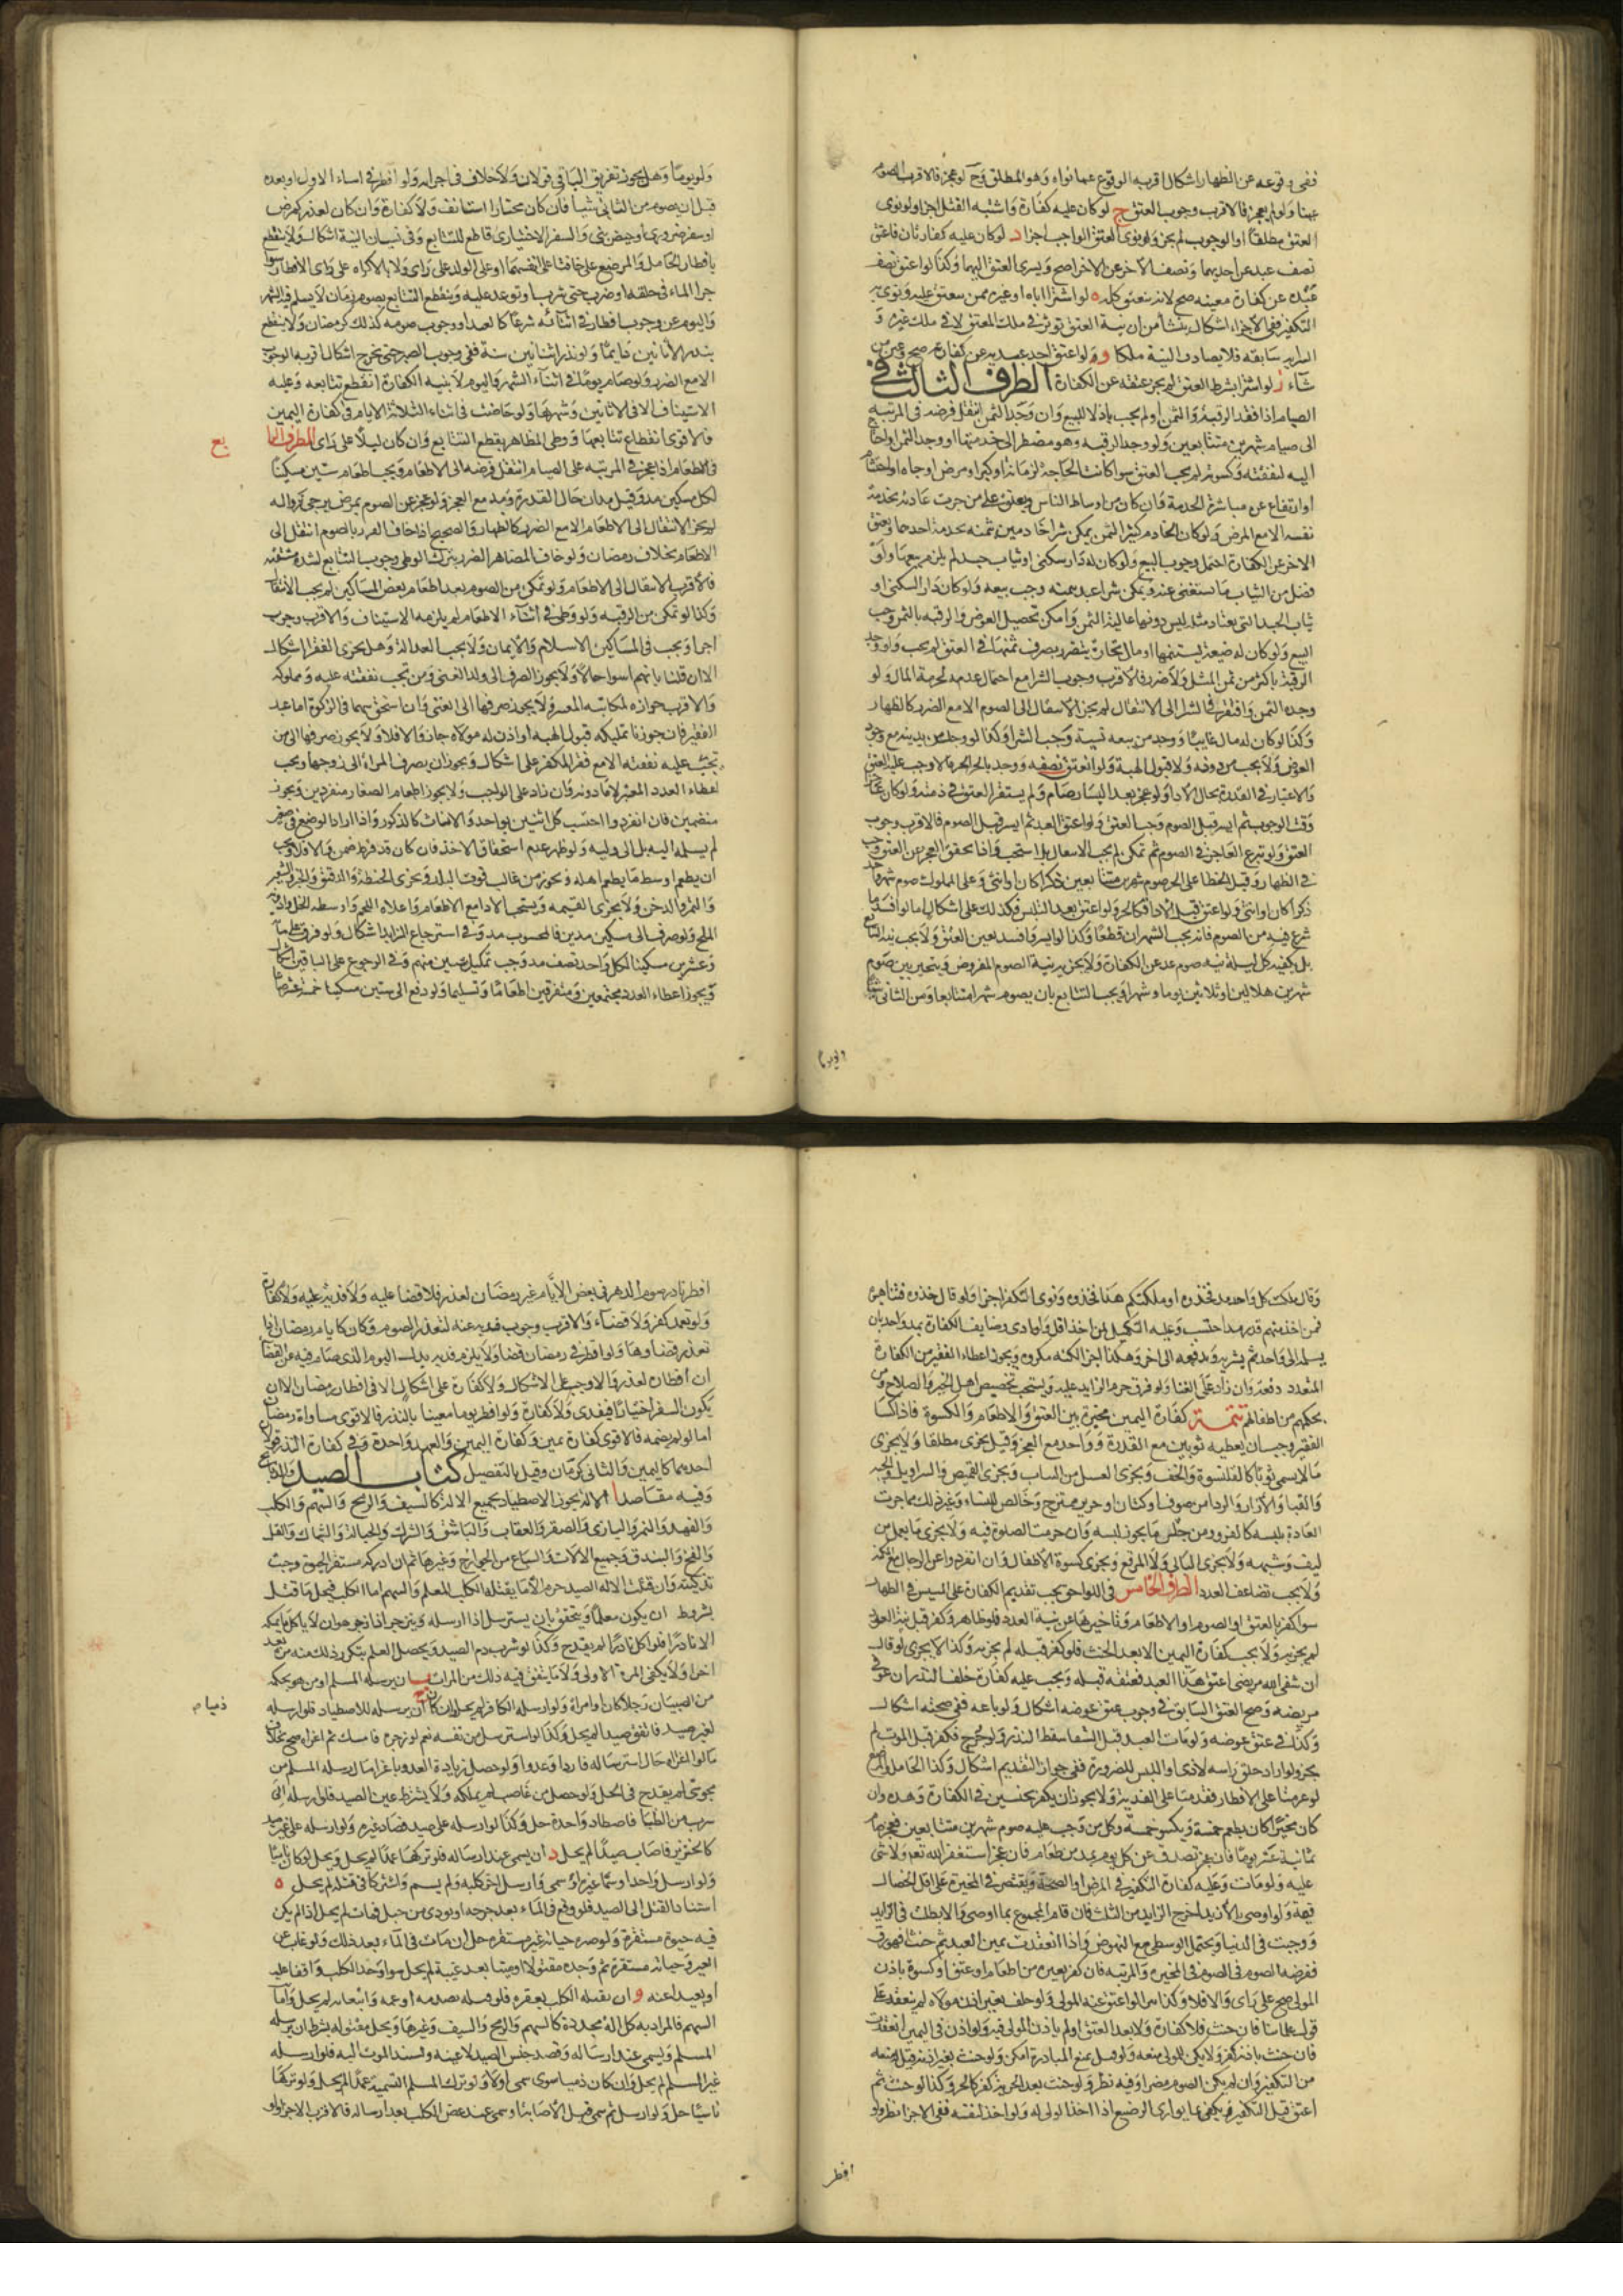 ففي وقوعه عن الظهار اشكال اقربه الوقوع عما نواه وهو المطلق وح لو عجز فالاقرب الصوم
هنا ولو لم يعجز فالاقرب وجوب العتق ج لو كان عليه كفارة واشتبه القتل اجزا ولو نوى
العتق مطلقا او الوجوب لم يجز ولو نوى العتق الواجب اجزا د لو كان عليه كفارتان فاعتق
نصف عبد عن احديهما ونصف الاخر عن الاخر اصح ويسرى العتق اليهما وكذا لو اعتق نصف
عبده عن كفارة معينه صح لانه ينعتق كله ه لو اشترا اباه او غيره ممن ينعتق عليه ونوى به
التكفير ففى الاجزاء اشكال ينشأ من ان نية العتق توثر في ملك المعتق لا في ملك غيره و
السرايه سابقه فلا يصادف النية ملكا و ولو اعتق احد عبديه عن كفارته صح وعين من
شاء ز لو اشترا بشرط العتق لم يجز عتقه عن الكفارة الطرف الثالث في
الصيام اذا فقد الرقبة والثمن او لم يجب باذلا للبيع وان وجد الثمن انتقل فرضه في المرتبه
الى صيام شهرين متتابعين ولو وجد الرقبه وهو مضطر الى خدمتها او وجد الثمن واحتاج
اليه لنفقته وكسوته لم يجب العتق سوا كانت الحاجة لزمانة او كبر او مرض او جاه او احتشام
او ارتفاع عن مباشرة الخدمة وان كان من اوساط الناس ويعتق على من جرت عادته بخدمة
نفسه الا مع المرض ولو كان الخادم كثير الثمن يمكن شرا خادمين بثمنه يخدمه احدهما ويعتق
الاخر عن الكفارة احتمل وجوب البيع ولو كان له دار سكنى او ثياب جسد لم يلزم بيعها ولو
فضل من الثياب ما يستغنى عنه ويمكن شرا عبد بثمنه وجب بيعه ولو كان دار السكنى او
ثياب الجسد التى يعتاد مثله ليس دونها عالية الثمن وامكن تحصيل العوض والرقبه بالثمن وجب
البيع ولو كان له ضيعة يستنميها او مال تجارة يتضرر بصرف ثمنها في العتق لم يجب ولو وجد
الرقبة باكثر من ثمن المثل ولا ضرر فالاقرب وجوب الشرا مع احتمال عدمه لحرمة المال ولو
وجد الثمن وافتقر في الشرا الى الانتقال لم يجز الانتقال الى الصوم الا مع الضرر كالظهار
وكذا لو كان له مال غايبا ووجد من يبيعه نسية وجب الشرا وكذا لو وجد من يدينه مع وجود
العوض ولا يجب من دونه ولا قبول الهبة ولو انعتق نصفه ووجد بالجز الحر مالا وجب عليه العتق
والاعتبار في القدرة بحال الادا ولو عجز بعد اليسار صام ولم يستقر العتق في ذمته ولو كان عاجزا
وقت الوجوب ثم ايسر قبل الصوم وجب العتق ولو اعتق العبد ثم ايسر قبل الصوم فالاقرب وجوب
العتق ولو شرع العاجز في الصوم ثم تمكن لم يجب الانتقال بل استحب واذا تحقق العجز عن العتق وجب
في الظهار وقتل الخطا على الحر صوم شهرين متتابعين ذكرا كان او انثى وعلى المملوك صوم شهر واحد
ذكرا كان او انثى ولو اعتق قبل الادا فكالحر ولو اعتق بعد التلبس فكذلك على اشكال اما لو افسد ما
شرع فيه من الصوم فانه يجب الشهران قطعا وكذا لو ايسر وافسد تعين العتق ولا يجب نية التتابع
بل يكفيه كل ليلة نيه صوم غد عن الكفارة ولا يجزيه نية الصوم المفروض ويتخير بين صوم
شهرين هلالين او ثلاثين يوما وشهرا ويجب التتابع بان يصوم شهرا متتابعا ومن الثانى شيئا
ولو يوما
ولو يوما وهل يجوز تفريق الباقى قولان ولا خلاف في اجزائه ولو افطر في اثناء الاول او بعده
قبل ان يصوم من الثانى شيأ فان كان مختارا استانف ولا كفارة وان كان لعذر كمرض
او سفر ضرورى او حيض بنى والسفر الاختيارى قاطع للتتابع وفي نسيان النية اشكال ولا ينقطع
بافطار الحامل والمرضع على خافتا على انفسهما او على الولد على راى ولا بالاكراه على راى الافطار سوا
جرا الماء في حلقه او ضرب حتى شرب او توعد عليه وينقطع التتابع بصوم زمان لا يسلم فيه الشهر
واليوم عن وجوب افطار في اثنائه شرعا كالعيد او وجوب صومه كذلك كرمضان ولا ينقطع
بنذر الاثانين دايما ولو نذر اثانين سنة ففى وجوب الصبر حتى تخرج اشكال اقربه الوجوب
الا مع الضرر ولو صام يوما في اثناء الشهر واليوم لا بنية الكفارة انقطع تتابعه وعليه
الاستيناف الا في الاثانين وشهرها ولو حاضت في اثناء الثلاثة الايام في كفارة اليمين
فالاقوى انقطاع تتابعها ووطى المظاهر يقطع التتابع وان كان ليلا على راى الطرف الرا
بع
في الاطعام اذا عجز في المرتبه على الصيام انتقل فرضه الى الاطعام ويجب اطعام ستين مسكينا
لكل مسكين مد وقيل مدان حال القدرة ومد مع العجز ولو عجز عن الصوم بمرض يرجى زواله
لم يجز الانتقال الى الاطعام الا مع الضرر كالظهار والصحيح اذا خاف الضرر بالصوم انتقل الى
الاطعام بخلاف رمضان ولو خاف المضاهر الضرر بترك الوطى وجوب التتابع لشدة شبقه
فالاقرب الانتقال الى الاطعام ولو تمكن من الصوم بعد اطعام بعض المساكين لم يجب الانتقال
وكذا لو تمكن من الرقبه ولو وطى في اثناء الاطعام لم يلزمه الاستيناف والاقرب وجوب
اجما ويجب في المساكين الاسلام والايمان ولا يجب العدالة وهل يجزى الفقرا اشكال
الا ان قلنا بانهم اسوا حالا ولا يجوز الصرف الى ولد الغنى ومن تجب نفقته عليه ومملوكه
والاقرب جوازه لمكاتبه المعسر ولا يجوز صرفها الى الغنى وان استحق سهما في الزكوة اما عبد
الفقير فان جوزنا تمليكه قبول الهبه او اذن له مولاه جاز والا فلا ولا يجوز صرفها الى من
تجب عليه نفقته الا مع فقر المكفر على اشكال ويجوز ان يصرف المراة الى زوجها ويجب
اعطاء العدد المعتبر لا ما دونه وان زاد على الواجب ولا يجوز اطعام الصغار منفردين ويجوز
منضمين فان انفردوا احتسب كل اثنين بواحد والاناث كالذكور واذا اراد الوضع في صغير
لم يسلمه اليه بل الى وليه ولو ظهر عدم استحقاق الاخذ فان كان قد فرط ضمن والا فلا ويجب
ان يطعم اوسط ما يطعم اهله ويجوز من غالب قوت البلد ويجزى الحنطة والدقيق والخبز والشعير
والتمر والدخن ولا يجزى القيمه ويستحب الادام مع الاطعام واعلاه اللحم واوسطه الخل وادونه
الملح ولو صرف الى مسكين مدين فالمحسوب مد وفي استرجاع الزايد اشكال ولو فرق على ماية
وعشرين مسكينا لكل واحد نصف مد وجب تكميل ستين منهم وفي الرجوع على الباقين اشكال
ويجوز اعطاء العدد مجتمعين ومتفرقين اطعاما وتسليما ولو دفع الى ستين مسكينا خمسة عشر صاعا
وقال ملكت كل واحد مد فخذوه او ملكتكم هذا فخذوه ونوى التكفير اجزا ولو قال خذوه فتناهبوه
فمن اخذ منهم قدر مد احتسب وعليه التكميل لمن اخذ اقل ولو ادى وضايف الكفارة بمد واحد بان
يسلمه الى واحد ثم يشتريه ويدفعه الى اخر وهكذا اجزا لكنه مكروه ويجوز اعطاء الفقير من الكفارة
المتعدد دفعة وان زاد على الغنا ولو فرق حرم الزايد عليه ويستحب تخصيص اهل الخير والصلاح ومن
بحكمهم من اطفالهم تتمة كفارة اليمين مخيرة بين العتق والاطعام والكسوة فاذا كسا
الفقير وجب ان يعطيه ثوبين مع القدرة وواحد مع العجز وقيل يجزى مطلقا ولا يجزى
ما لا يسمى ثوبا كالقلنسوة والخف ويجزى الغسل من الثياب ويجزى القميص والسراويل والجبه
والقبا والازار والردا من صوف او كتان او حرير ممتزج وخالص للنساء وغير ذلك مما جرت
العادة بلبسه كالفرو ومن جلد ما يجوز لبسه وان حرمت الصلوة فيه ولا يجزى ما يعمل من
ليف وشبهه ولا يجزى البالى ولا المرقع ويجزى كسوة الاطفال وان انفردوا عن الرجال
ولا يجب تضاعف العدد الطرف الخامس في اللواحق يجب تقديم الكفارة على المسيس في الظهار
سوا كفر بالعتق او الصوم او الاطعام
لم يجزيه ولا يجب كفارة اليمين الا بعد الحنث فلو كفر قبله لم يجزيه وكذا لا يجزى لو قال
ان شفى الله مريضى اعتق هذا العبد فعتقه قبله ويجب عليه كفارة خلف النذر ان عوفى
مريضه وصح العتق السابق وفي وجوب عتق عوضه اشكال ولو باعه ففى صحته اشكال
وكذا في عتق عوضه ولو مات العبد قبل الشفا سقط النذر ولو جرح فكفر قبل الموت لم
يجز ولو اراد حلق راسه لاذى او اللبس للضرورة ففى جواز التقديم اشكال وكذا الحامل والمرضع
لو عزمتا على الافطار فقدمتا على الفدية ولا يجوز ان يكفر بجنسين في الكفارة وحده وان
كان مخيرا كان يطعم خمسة ويكسو خمسة وكل من وجب عليه صوم شهرين متتابعين فعجز صام
ثمانية عشر يوما فان عجز تصدق عن كل يوم بمد من طعام فان عجز استغفر الله تعه ولا شى
عليه ولو مات وعليه كفارة التكفير في المرض او الصحة ويقتصر في المخيرة على اقل الخصال
قيمة ولو اوصى بالازيد اخرج الزايد من الثلث فان قام المجموع بما اوصى والا بطلت في الزايد
ووجبت في الدنيا ويحتمل الوسطى مع النهوض واذا انعقدت يمين العبد ثم حنث فهو رق
ففرضه الصوم في المخيره والمرتبه فان كفر بغيره من اطعام او عتق او كسوة باذن
المولى صح على راى والا فلا وكذا يبرا لو اعتق عنه المولى ولو حلف بغير اذن مولاه لم ينعقد على
قول علمائنا فان حنث فلا كفارة ولا بعد العتق او لم ياذن المولى فيه ولو اذن في اليمين انعقدت
فان حنث باذنه كفر ولا يكن للمولى منعه ولو قيل بمنع المبادرة امكن ولو حنث بغير اذنه قيل له منعه
من التكفير وان لم يكن الصوم مضرا وفيه نظر ولو حنث بعد الحرية كفر كالحر وكذا لو حنث ثم
اعتق قبل التكفير ويكفى ما يوارى الرضيع اذا اخذ الولى له ولو اخذ لنفسه ففى الاجزا نظر ولو
افطر
افطر ناذر صوم الدهر في بعض الايام غير رمضان لعذر فلا قضا عليه ولا فدية عليه ولا كفارة
ولو تعمد كفر ولا قضاء والاقرب وجوب فديه عنه لتعذر الصوم وكان كايام رمضان اذا
تعذر قضاوها ولو افطر في رمضان قضا ولا يلزم فديه بدلت اليوم الذى صام فيه عن القضا
ان افطاره لعذر فالاوجب على الاشكال ولا كفارة على اشكال الا في افطار رمضان الا ان
يكون السفر اختيارا فيفدى ولا كفارة ولو افطر يوما معينا بالنذر فالاقوى مساواة رمضان
اما لو لم يصمه فالاقوى كفارة يمين وكفارة اليمين والعهد واحدة وفي كفارة النذر قولان
احدهما كاليمين والثانى كرمضان وقيل بالتفصيل كتاب الصيد والذبايح
وفيه مقاصد ا الاله يجوز الاصطياد بجميع الاله كالسيف والرمح والسهم والكلب
والفهد والنمر والبازى والصقر والعقاب والباشق والشرك والحباله والشباك والفتل
والفخ والبندق وجميع الالات والسباع من الجوارح وغيرها ثم ان ادركه مستقر الحيوة وجبت
تذكيته وان قتلت الاله الصيد حرم الا ما يقتله الكلب المعلم والسهم اما الكلب فيحل ما قتله
بشروط ان يكون معلما ويتحقق بان يسترسل اذا ارسله وينزجر اذا زجره وان لا ياكل ما يمسكه
الا نادرا فلو اكل نادرا لم يقدح وكذا لو شرب دم الصيد ويحصل العلم بتكرر ذلك منه مرة بعد
اخرا ولا يكفى المرة الاولى ولا ما يتفق فيه ذلك من المرات ب ان يرسله المسلم او من هو بحكمه
من الصبيان رجلا كان او امراة ولو ارسله الكافر لم يحل وان كان ذميا ج ان يرسله للاصطياد فلو ارسله
ذميا م
لغير صيد فاتفق صيدا لم يحل وكذا لو استرسل من نفسه نعم لو زجره فامسك ثم اغراه صح بخلاف
ما لو اغراه حال استرساله فازداد عدوا ولو حصل زيادة العدو باغرا ما ارسله المسلم من
مجوسى لم يقدح في الحل ولو حصل من غاصب لم يملكه ولا يشترط عين الصيد فلو ارسله الى
سرب من الظبا فاصطاد واحدة حل وكذا لو ارسله على صيد فصاد غيره ولو ارسله على غير صيد
كالخنزير فاصاب صيدا لم يحل د ان يسمى عند ارساله فلو تركها عمدا لم يحل ويحل لو كان ناسيا
ولو ارسل واحدا وسمى غيره او سمى وارسل اخر كلبه ولم يسم واشتركا في قتله لم يحل ه
استناد القتل الى الصيد فلو وقع في الماء بعد جرحه او تردى من جبل فمات لم يحل اذا لم يكن
فيه حيوة مستقرة ولو صيره حياته غير مستقره حل ان مات في الماء بعد ذلك ولو غاب عن
العين وحياته مستقرة ثم وجده مقتولا او ميتا بعد غيبة لم يحل سوا وجد الكلب واقفا عليه
او بعيدا عنه و ان يقتله الكلب بعقره فلو قتله بصدمه او غمه واتعابه لم يحل واما
السهم فالمراد به كل الة مجددة كالسهم والرمح والسيف وغيرها ويحل مقتوله بشرط ان يرسله
المسلم ويسمى عند ارساله وقصد جنس الصيد لا عينه ويستند الموت اليه فلو ارسله
غير المسلم لم يحل وان كان ذميا سوى سمى او لا ولو ترك المسلم التسمية عمدا لم يحل ولو تركها
ناسيا حل ولو ارسل ثم سمى قبل الاصابة او سمى عند عض الكلب بعد ارساله فالاقرب الاجزا ولو